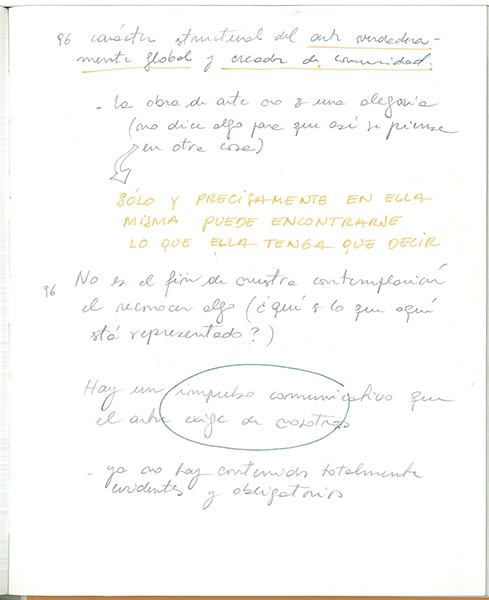 96 carácter structural del arte verdadera-
mente global y creador de comunidad.
- La obra de arte no es una alegoría
(no dice algo para que así se piense
en otra cosa)
SÓLO Y PRECISAMENTE EN ELLA
MISMA PUEDE ENCONTRARSE
LO QUE ELLA TENGA QUE DECIR
96 No es el fin de nuestra contemplación
el reconocer algo (¿qué es lo que aquí
está representado?)
Hay un impulso comunicativo que
el arte exige de nosotros
- ya no hay contenidos totalmente
evidentes y obligatorios